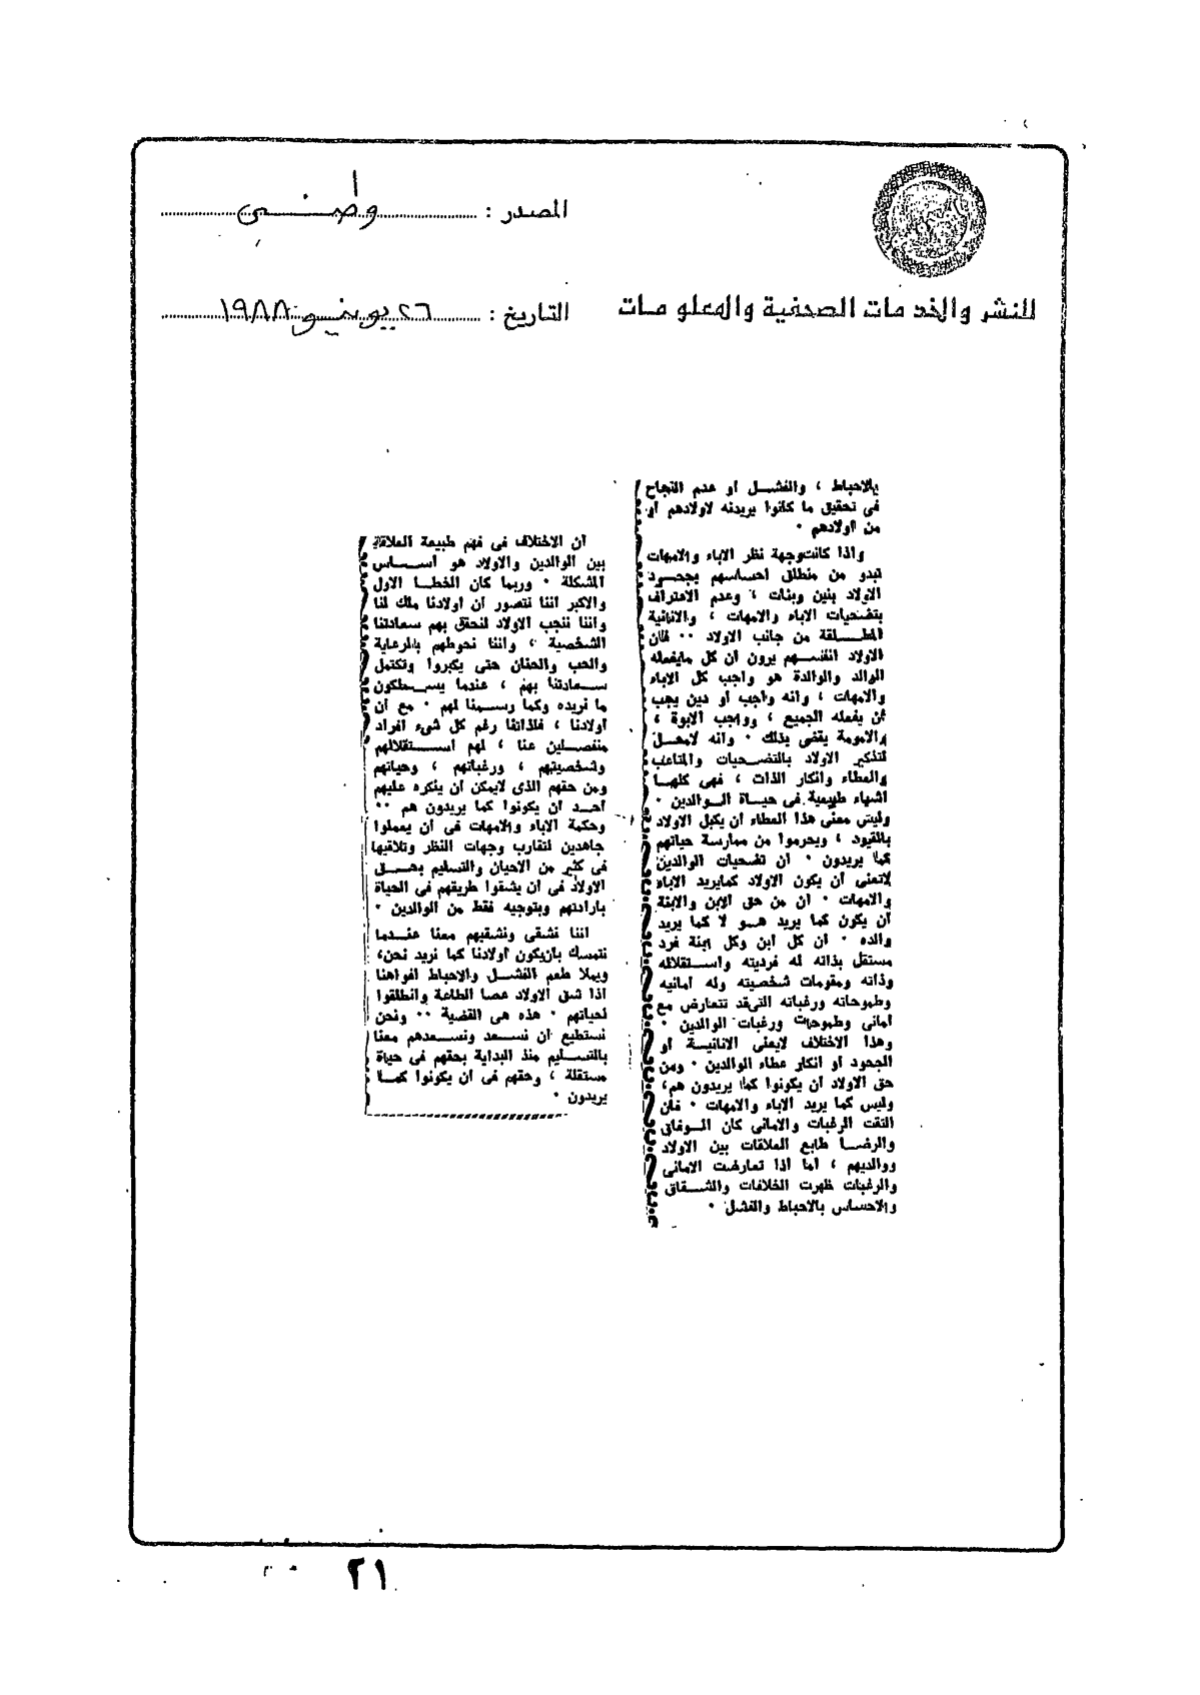 المصدر : وطني
للنشر والخدمات الصحفية والمعلومات
التاريخ : ٢٦ يونيو ١٩٨٨
بالاحباط ، والفشل او عدم النجاح
فى تحقيق ما كانوا يريدنه لاولادهم او
من اولادهم ٠
واذا كانت وجهة نظر الاباء والامهات
تبدو من منطلق احساسهم بجحود
الاولاد بنين وبنات ، وعدم الاعتراف
بتضحيات الاباء والامهات ، والانانية
المطلقة من جانب الاولاد ٠٠ فان
الاولاد انفسهم يرون ان كل مايفعله
الوالد والوالدة هو واجب كل الاباء
والامهات ، وانه واجب او دين يجب
ان يفعله الجميع ، وواجب الابوة ،
والامومة يقضى بذلك ٠ وانه لامحل
لتذكير الاولاد بالتضحيات والمتاعب
والعطاء وانكار الذات ، فهى كلها
اشياء طبيعية فى حياة الوالدين ٠
وليس معنى هذا العطاء ان يكبل الاولاد
بالقيود ، ويحرموا من ممارسة حياتهم
كما يريدون ٠ ان تضحيات الوالدين
لاتعنى ان يكون الاولاد كمايريد الاباء
والامهات ٠ ان من حق الابن والابنة
ان يكون كما يريد هو لا كما يريد
والده ٠ ان كل ابن وكل ابنة فرد
مستقل بذاته له فرديته واستقلاله
وذاته ومقومات شخصيته وله امانيه
وطموحاته ورغباته التىقد تتعارض مع
امانى وطموحات ورغبات الوالدين ٠
وهذا الاختلاف لايعنى الانانية او
الجحود او انكار عطاء الوالدين ٠ ومن
حق الاولاد ان يكونوا كما يريدون هم،
وليس كما يريد الاباء والامهات ٠ فان
التقت الرغبات والامانى كان الوفاق
والرضا طابع العلاقات بين الاولاد
ووالديهم ، اما اذا تعارضت الامانى
والرغبات ظهرت الخلافات والشقاق
والاحساس بالاحباط والفشل ٠
ان الاختلاف فى فهم طبيعة العلاقة
بين الوالدين والاولاد هو اساس
المشكلة ٠ وربما كان الخطا الاول
والاكبر اننا نتصور ان اولادنا ملك لنا
واننا ننجب الاولاد لنحقق بهم سعادتنا
الشخصية ، واننا نحوطهم بالرعاية
والحب والحنان حتى يكبروا وتكتمل
سعادتنا بهم ، عندما يسلكون
ما نريده وكما رسمنا لهم ٠ مع ان
اولادنا ، فلذاتنا رغم كل شىء افراد
منفصلين عنا ، لهم استقلالهم
وشخصيتهم ، ورغباتهم ، وحياتهم
ومن حقهم الذى لايمكن ان ينكره عليهم
احد ان يكونوا كما يريدون هم ٠٠
وحكمة الاباء والامهات فى ان يعملوا
جاهدين لتقارب وجهات النظر وتلاقيها
فى كثير من الاحيان والتسليم بحق
الاولاد فى ان يشقوا طريقهم فى الحياة
بارادتهم وبتوجيه فقط من الوالدين ٠
اننا نشقى ونشقيهم معنا عندما
نتمسك بانيكون اولادنا كما نريد نحن،
ويملا طعم الفشل والاحباط افواهنا
اذا شق الاولاد عصا الطاعة وانطلقوا
لحياتهم ٠ هذه هى القضية ٠٠ ونحن
نستطيع ان نسعد ونسعدهم معنا
بالتسليم منذ البداية بحقهم فى حياة
مستقلة ، وحقهم فى ان يكونوا كما
يريدون ٠
٢١